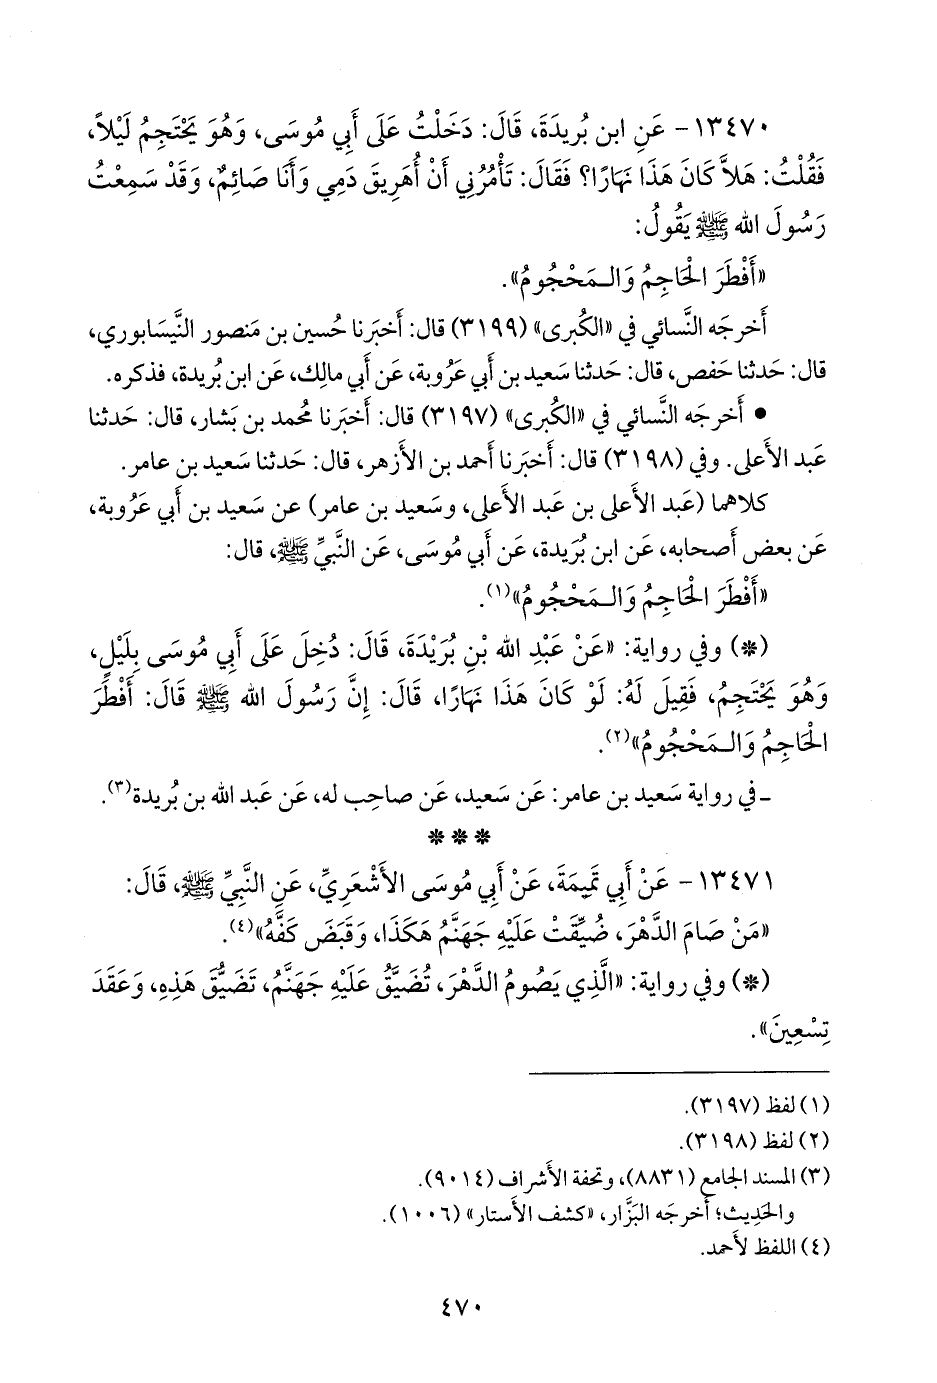 ١٣٤٧٠- عَنِ ابن بُريدَةَ، قَالَ: دَخَلْتُ عَلَى أَبِي مُوسَى، وَهُوَ يَحْتَجِمُ لَيْلاً،
فَقُلْتُ: هَلاَّ كَانَ هَذَا نَهَارًا؟ فَقَالَ: تَأْمُرُنِي أَنْ أُهَرِيقَ دَمِي وَأَنَا صَائِمٌ، وَقَدْ سَمِعْتُ
رَسُولَ الله ﷺ يَقُولُ:
«أَفْطَرَ الْحَاجِمُ وَالـمَحْجُومُ».
أَخرجَه النَّسائي في «الكُبرى» (٣١٩٩) قال: أَخبَرنا حُسين بن مَنصور النَّيسَابوري،
قال: حَدثنا حَفص، قال: حَدثنا سَعيد بن أَبي عَرُوبة، عَن أَبي مالِك، عَن ابن بُريدة، فذكره.
• أَخرجَه النَّسائي في «الكُبرى» (٣١٩٧) قال: أَخبَرنا مُحمد بن بَشار، قال: حَدثنا
عَبد الأَعلى. وفي (٣١٩٨) قال: أَخبَرنا أَحمد بن الأَزهر، قال: حَدثنا سَعيد بن عامر.
كلاهما (عَبد الأَعلى بن عَبد الأَعلى، وسَعيد بن عامر) عن سَعيد بن أَبي عَرُوبة،
عَن بعض أَصحابه، عَن ابن بُرَيدة، عَن أَبي مُوسَى، عَن النَّبيِّ ﷺ، قال:
«أَفْطَرَ الْحَاجِمُ وَالـمَحْجُومُ»(١).
(*) وفي رواية: «عَنْ عَبْدِ الله بْنِ بُرَيْدَةَ، قَالَ: دُخِلَ عَلَى أَبِي مُوسَى بِلَيْلٍ،
وَهُوَ يَحْتَجِمُ، فَقِيلَ لَهُ: لَوْ كَانَ هَذَا نَهَارًا، قَالَ: إِنَّ رَسُولَ الله ﷺ قَالَ: أَفْطَرَ
الْحَاجِمُ وَالـمَحْجُومُ»(٢).
ـ في رواية سَعيد بن عامر: عَن سَعيد، عَن صاحِب له، عَن عَبد الله بن بُريدة(٣).
* * *
١٣٤٧١- عَنْ أَبِي تَمِيمَةَ، عَنْ أَبِي مُوسَى الأَشْعَرِيِّ، عَنِ النَّبِيِّ ﷺ، قَالَ:
«مَنْ صَامَ الدَّهْرَ، ضُيِّقَتْ عَلَيْهِ جَهَنَّمُ هَكَذَا، وَقَبَضَ كَفَّهُ»(٤).
(*) وفي رواية: «الَّذِي يَصُومُ الدَّهْرَ، تُضَيَّقُ عَلَيْهِ جَهَنَّمُ، تَضَيُّقَ هَذِهِ، وَعَقَدَ
تِسْعِينَ».
(١) لفظ (٣١٩٧).
(٢) لفظ (٣١٩٨).
(٣) المسند الجامع (٨٨٣١)، وتحفة الأَشراف (٩٠١٤).
والحَدِيث؛ أَخرجَه البَزَّار، «كشف الأَستار» (١٠٠٦).
(٤) اللفظ لأَحمد.
٤٧٠